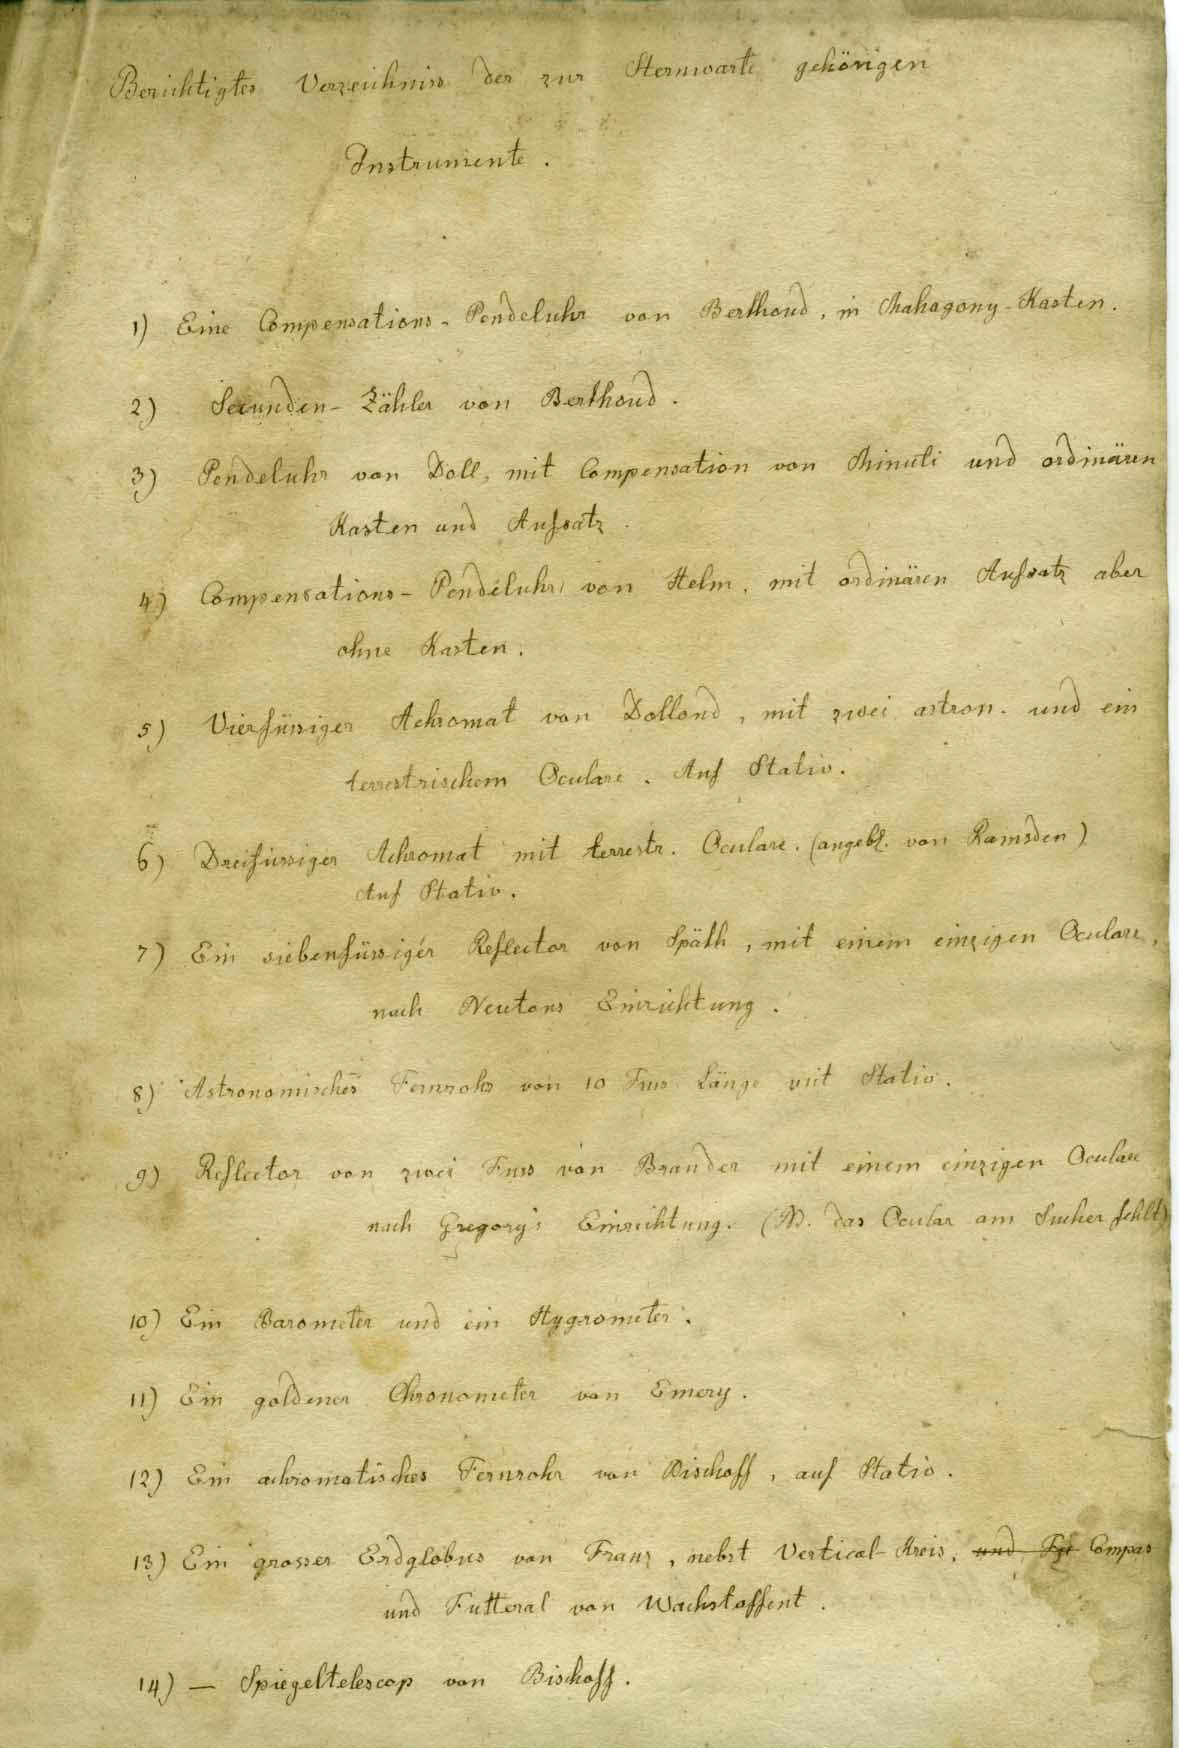 Berichtigtes Verzeichniss der zur Sternwarte gehörigen
Instrumente.
1) Eine Compensations-Pendeluhr von Berthoud, in Mahagony-Kasten.
2) Secunden-Zähler von Berthoud.
3) Pendeluhr von Doll, mit Compensation von Minuti und ordinären
Kasten und Aufsatz.
4) Compensations-Pendeluhr von Helm, mit ordinären Aufsatz aber
ohne Kasten.
5) Vierfüssiger Achromat von Dollond, mit zwei astron. und ein
terrestrischem Oculare. Auf Stativ.
6) Dreifüssiger Achromat mit terrestr. Oculare. (angebl. von Ramsden)
Auf Stativ.
7) Ein siebenfüssiger Reflector von Späth, mit einem einzigen Oculare,
nach Neutons Einrichtung.
8) Astronomisches Fernrohr von 10 Fuss Länge mit Stativ.
9) Reflector von zwei Fuss von Brander mit einem einzigen Oculare
nach Gregory's Einrichtung. (NB. das Ocular am Sucher fehlt)
10) Ein Barometer und ein Hygrometer.
11) Ein goldener Chronometer von Emery.
12) Ein achromatisches Fernrohr von Bischoff, auf Stativ.
13) Ein grosser Erdglobus von Franz, nebst Vertical-Kreis, und Compas
und Futteral von Wachstaffent.
14) — Spiegeltelescop von Bischoff.